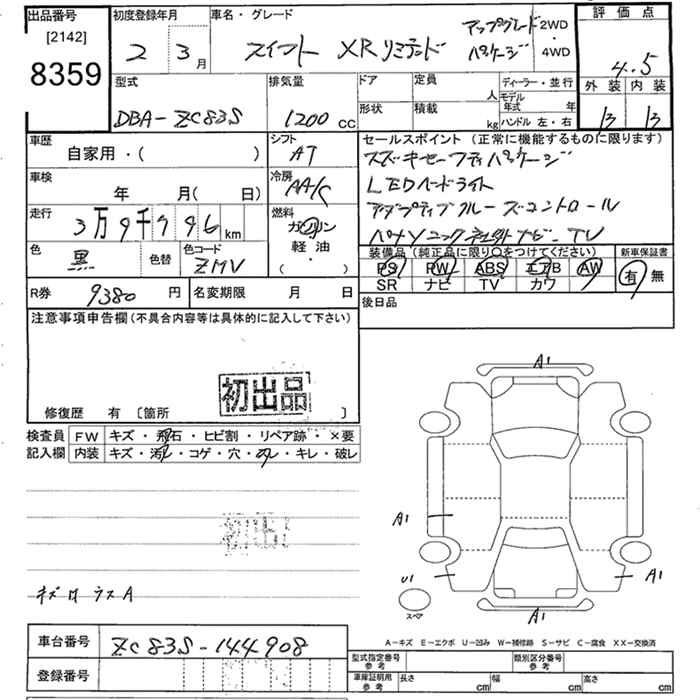 出品番号 初度登録年月 車名・グレード 評価点
[2142] アップグレード 2WD
8359 2 3月 スイフト XRリミテッド パッケージ ・4WD 4.5
型式 排気量 ドア 定員 人 ディーラー・並行 外装 内装
DBA-ZC83S 1200cc 形状 積載 kg モデル年式 年 ハンドル 左・右 B B
車歴 シフト セールスポイント(正常に機能するものに限ります)
自家用・( ) AT スズキセーフティパッケージ
車検 冷房 LEDヘッドライト
年 月( 日) AA/C アダプティブクルーズコントロール
走行 燃料 パナソニックナビ TV
3万9千796km ガソリン
色 色コード 軽油・ 装備品(純正品に限り○をつけてください) 新車保証書
黒 色替 ZMV ( ・ ) PS PW ABS エアB AW 有 無
SR ナビ TV カワ
R券 9380円 名変期限 月 日 後日品
注意事項申告欄(不具合内容等は具体的に記入して下さい)
初出品
修復歴 有 〔箇所 〕
検査員 FW キズ・飛石・ヒビ割・リペア跡・×要
記入欄 内装 キズ・汚れ・コゲ・穴・スレ・キレ・破レ
A1
A1
初出
U1 A1
キズ
スペア
A1
A-キズ E-エクボ U-凹み W-補修跡 S-サビ C-腐食 XX-交換済
車台番号 ZC83S-144908
登録番号
型式指定番号 参考 類別区分番号 参考
車庫証明用 参考 長さ cm 幅 cm 高さ cm